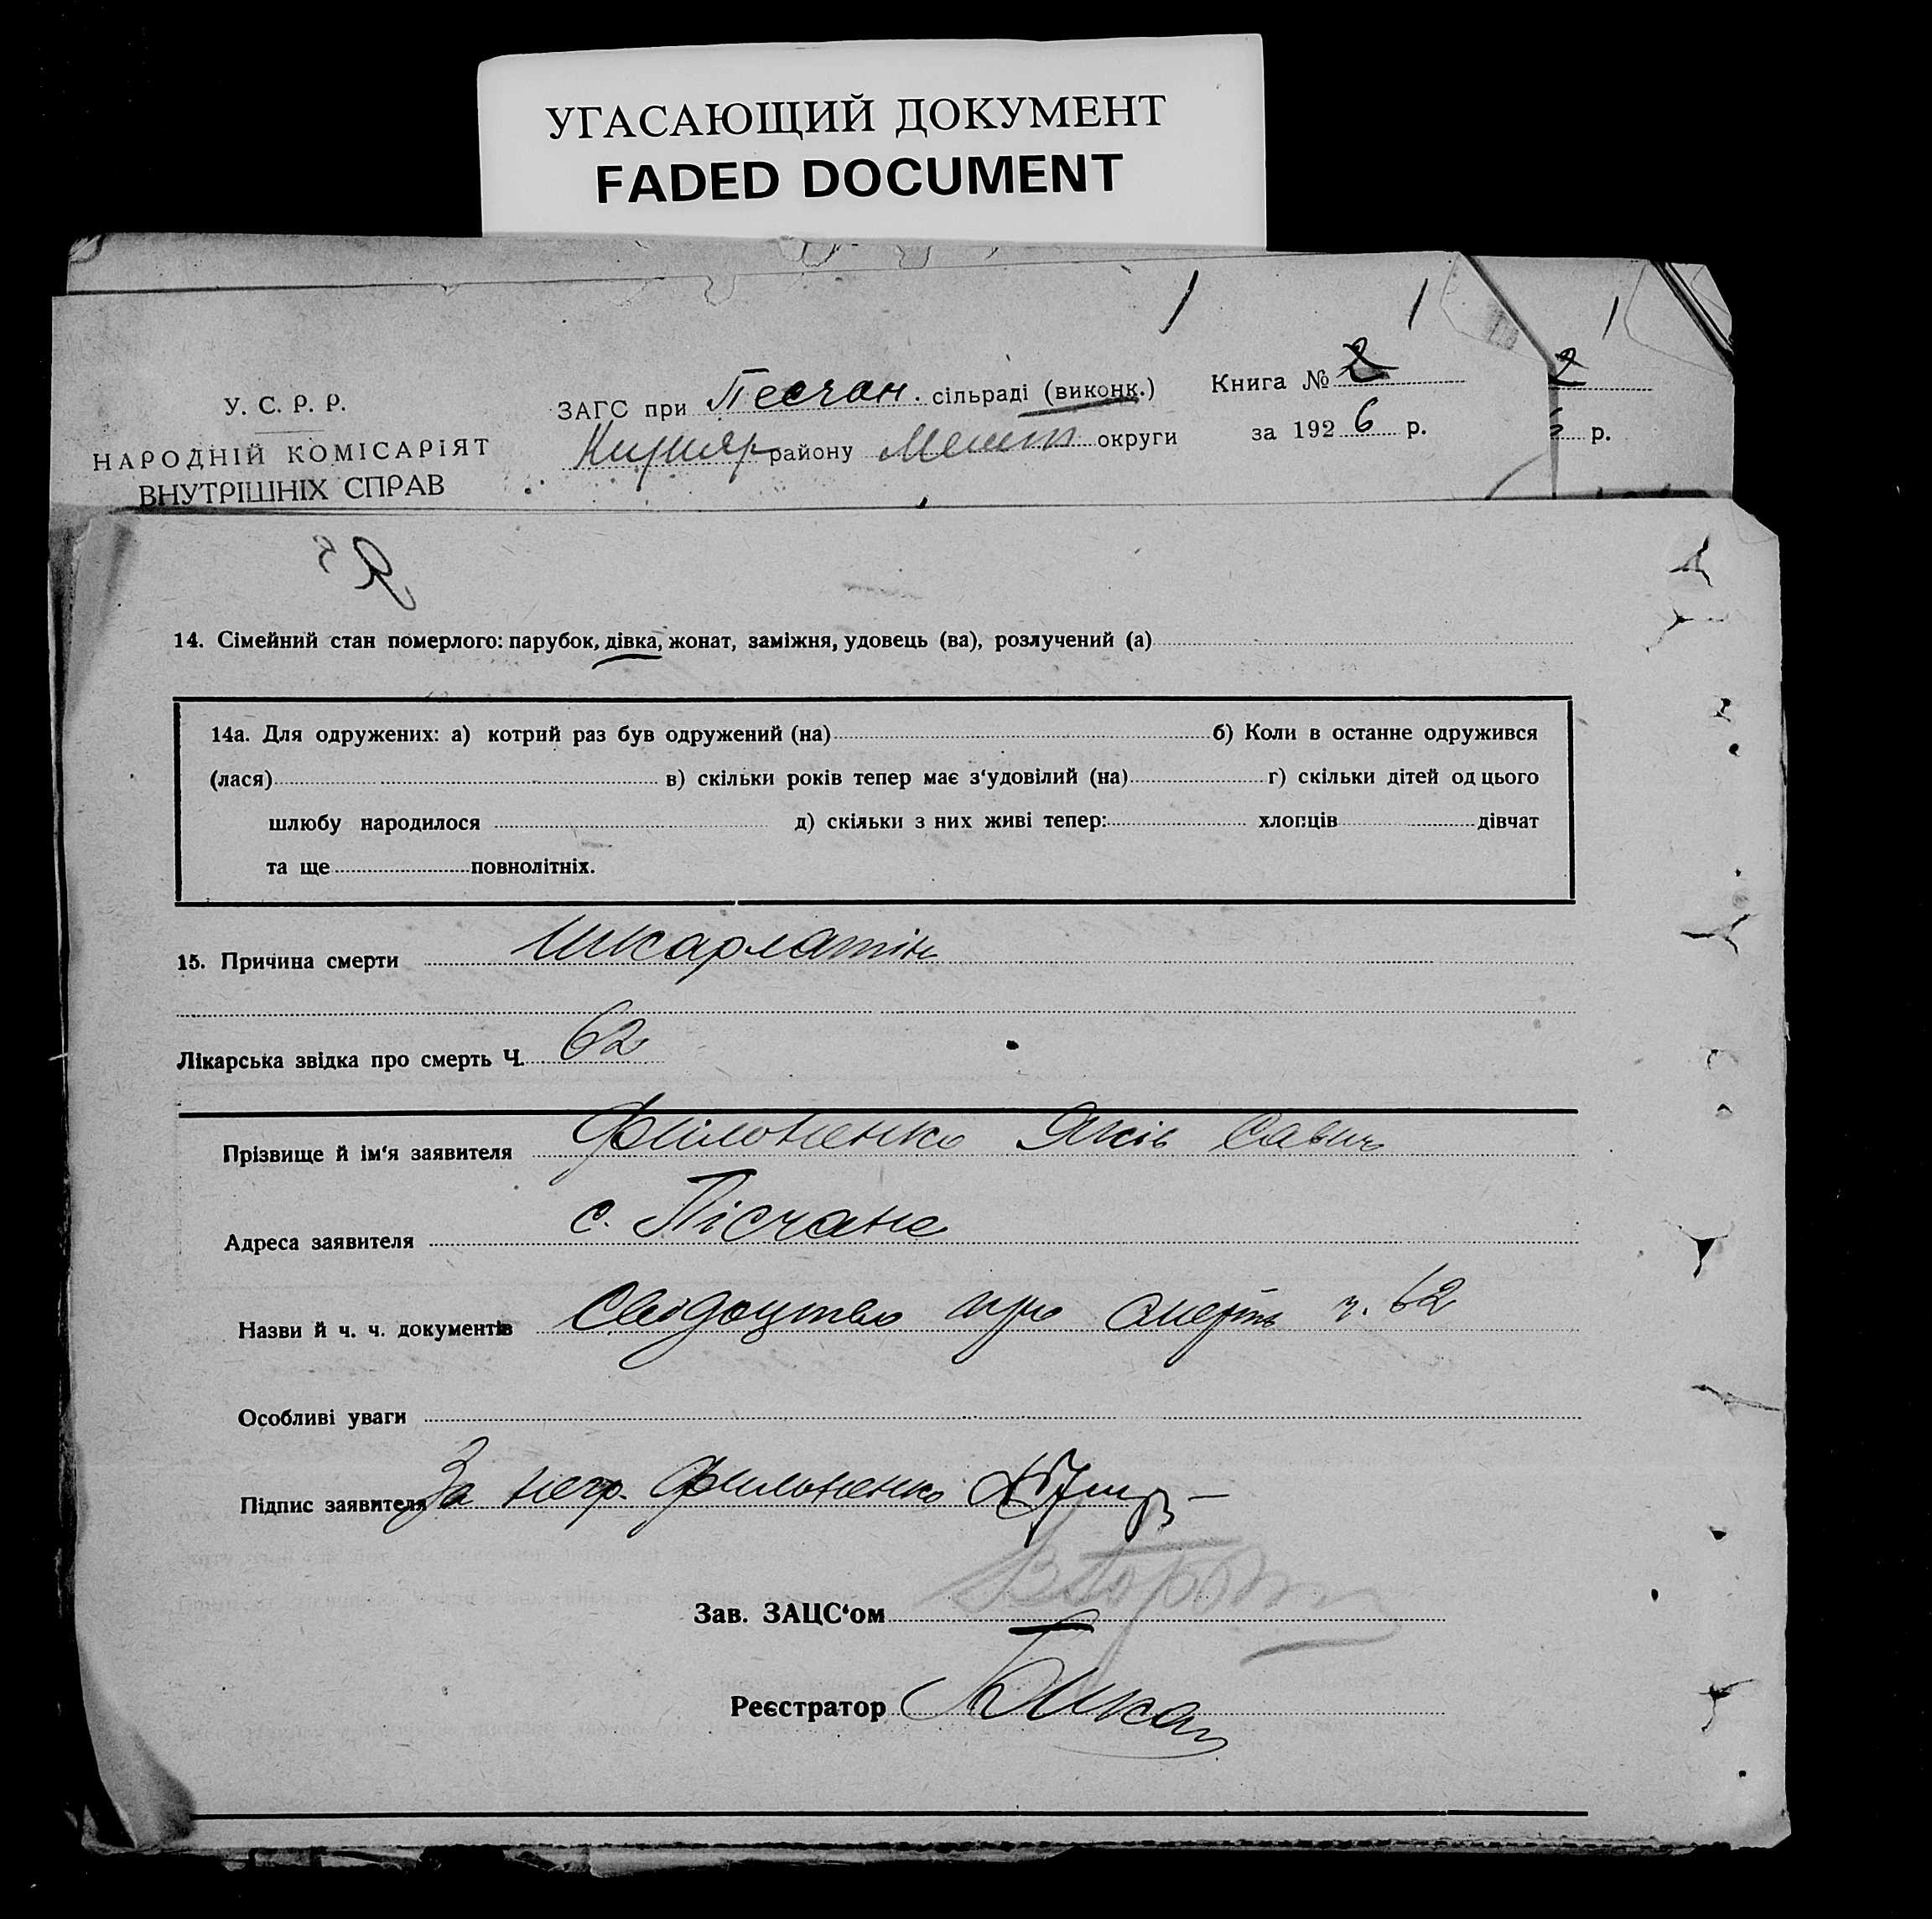 УГАСАЮЩИЙ ДОКУМЕНТ
FADED DOCUMENT
1 1 1
У. С. Р. Р.
НАРОДНІЙ КОМІСАРІЯТ
ВНУТРІШНІХ СПРАВ
ЗАГС при Песчан. сільраді (виконк.)
району Мелит округи
Книга № 2
за 1926 р.
2
р.
14. Сімейний стан померлого: парубок, дівка, жонат, заміжня, удовець (ва), розлучений (а)
14а. Для одружених: а) котрий раз був одружений (на) б) Коли в останне одружився
(лася) в) скільки років тепер має з‘удовілий (на) г) скільки дітей од цього
шлюбу народилося д) скільки з них живі тепер: хлопців дівчат
та ще повнолітніх.
15. Причина смерти Шкарлатін
Лікарська звідка про смерть Ч. 62
Прізвище й ім‘я заявителя Филоненко Яків Савич
Адреса заявителя с. Пісчане
Назви й ч. ч. документів Свідоцтво про смерть ч. 62
Особливі уваги
Підпис заявителя За негр. Филоненко
Зав. ЗАЦС‘ом
Реєстратор